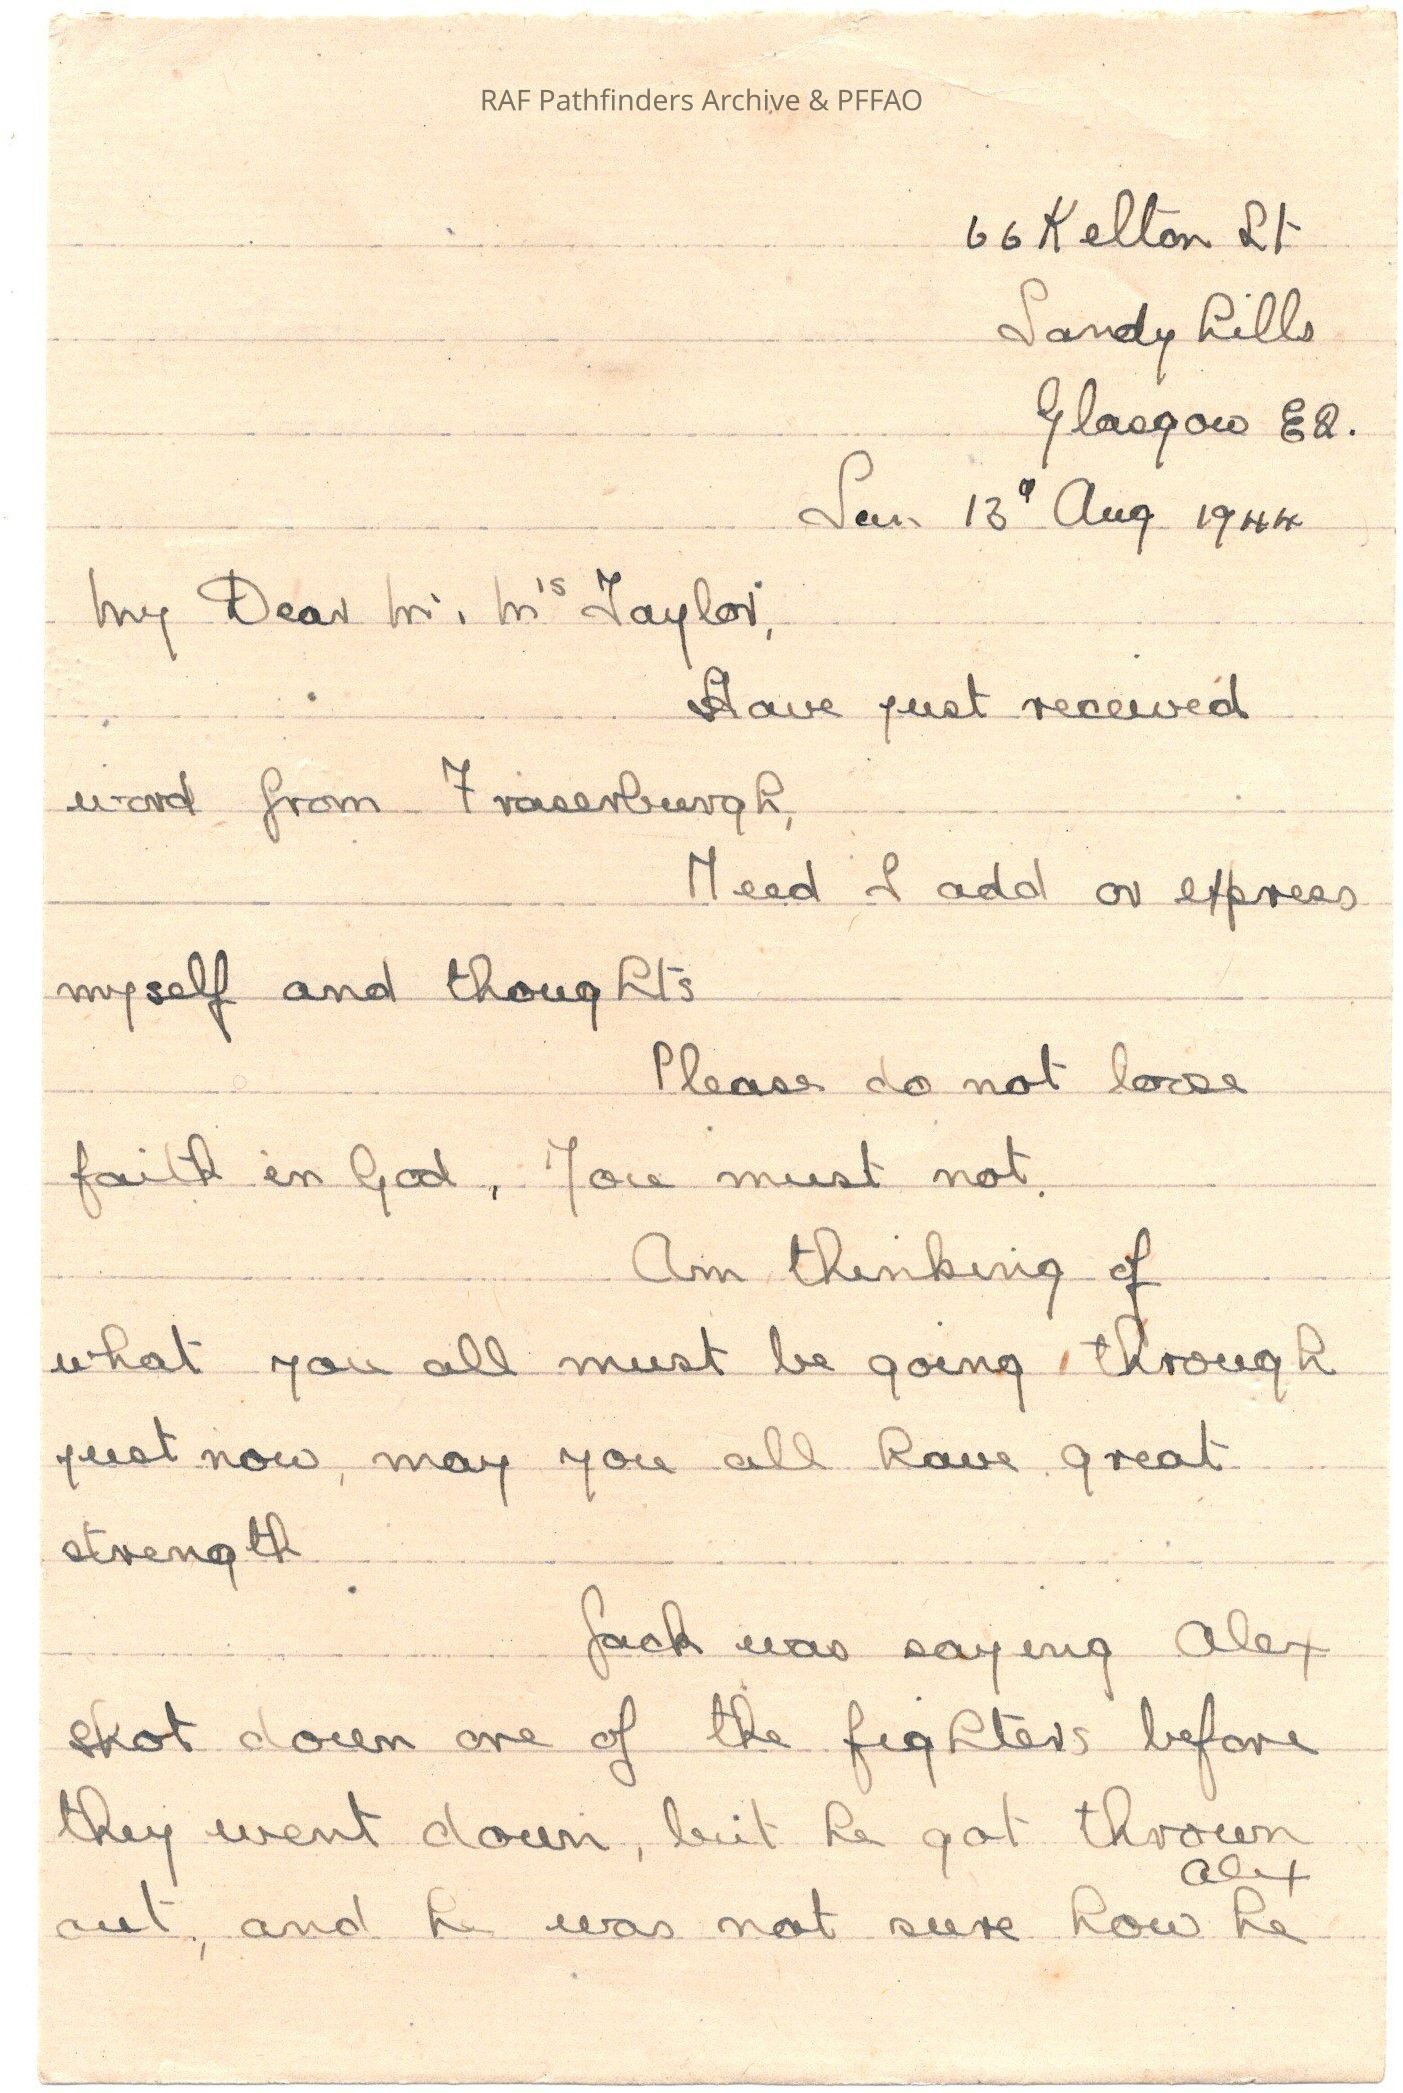 RAF Pathfinders Archive & PFFAO
66 Kelton St
Sandyhills
Glasgow E2.
Sun 13th Aug 1944
My Dear Mr. Mrs Taylor,
Have just received
word from Fraserburgh,
Need I add or express
myself and thoughts
Please do not loose
faith in God, You must not.
Am thinking of
what you all must be going through
just now, may you all have great
strength
Jack was saying Alex
shot down one of the fighters before
they went down, but he got thrown
out, and he was not sure how he
Alex